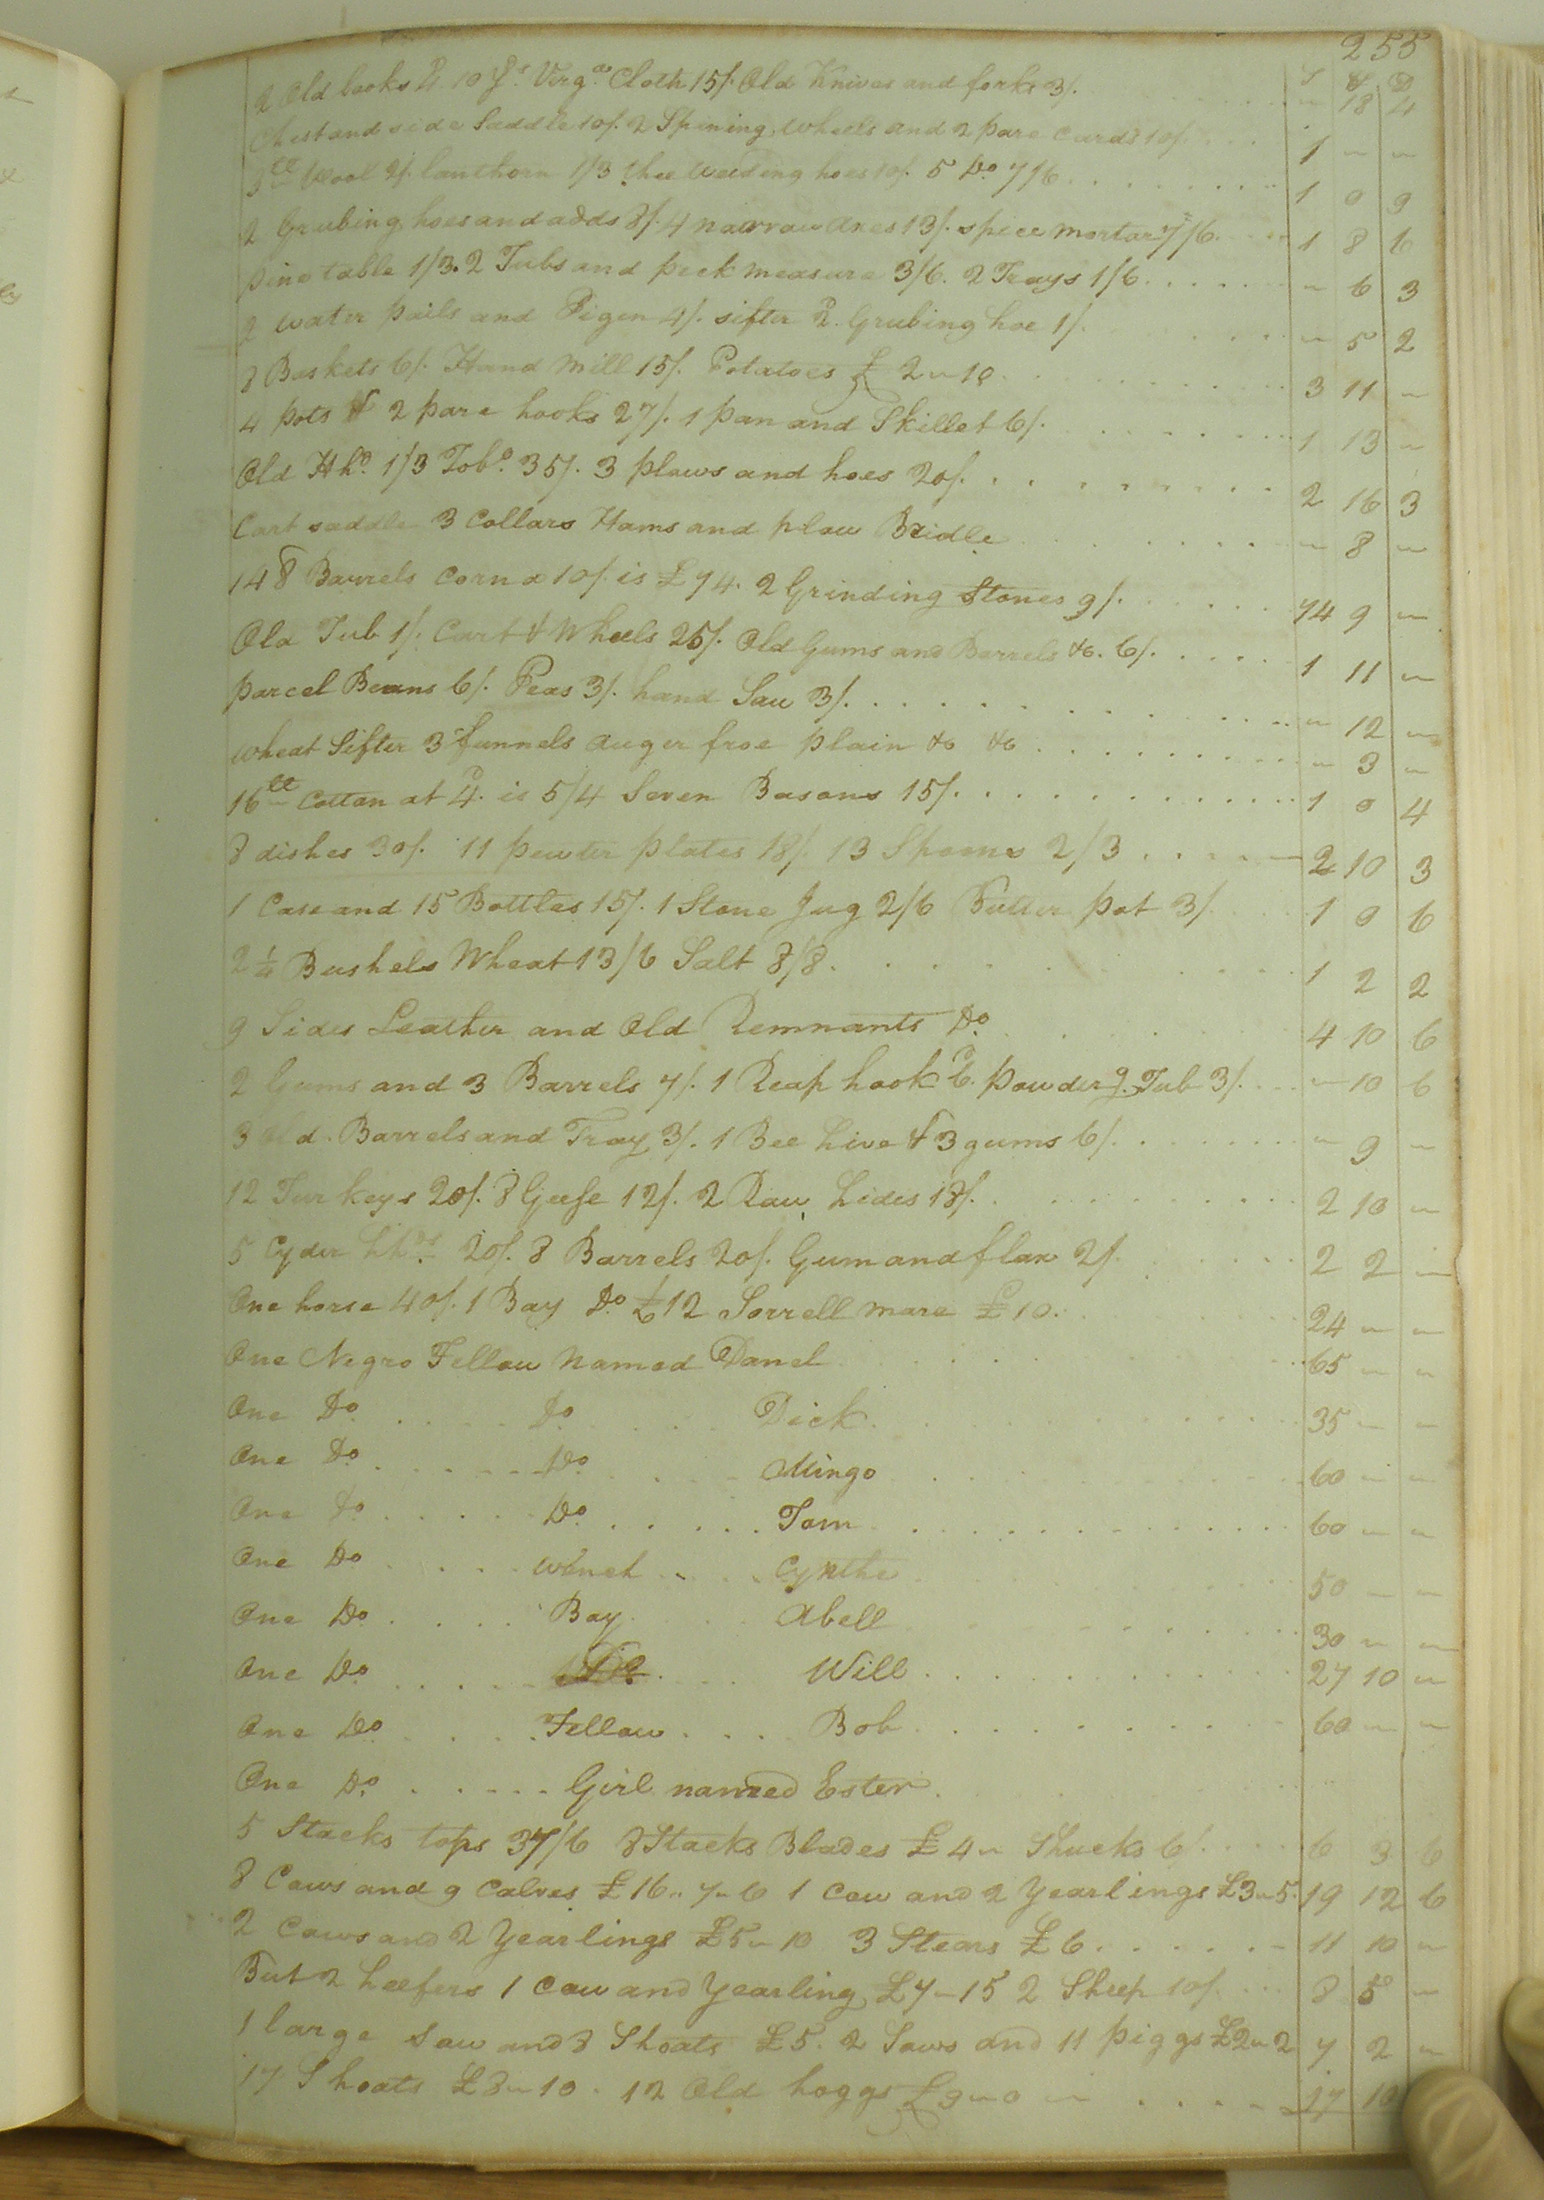 255
£ S D
2 Old books 4d 10 Yds Virga Cloth 15/. Old Knives and forks 3/. . . . " 18 4
Chest and side Saddle 10/. 2 Spining wheels and 2 pare Cards 10/. . . . 1 " "
3 lb Wool 2/. lanthorn 1/3 three weeding hoes 10/. 5 Do 7/6 . . . . 1 0 9
2 Grubing hoes and adds 8/. 4 narrow axes 13/. spice mortar 7/6 . . . . 1 8 6
pine table 1/3. 2 Tubs and peck measure 3/6. 2 Trays 1/6 . . . . " 6 3
2 water pails and Pigen 4/. sifter 2d. Grubing hoe 1/. . . . " 5 2
8 Baskets 6/. Hand Mill 15/. Potatoes £ 2 " 10 . . . . 3 11 "
4 pots & 2 pare hooks 27/. 1 pan and Skillet 6/. . . . . 1 13 "
Old Hhd. 1/3 Tobo. 35/. 3 plows and hoes 20/. . . . . 2 16 3
Cart saddle 3 Collars Hams and plow Bridle . . . . " 8 "
148 Barrels Corn a 10/. is £74. 2 Grinding Stones 9/. . . . . 74 9 "
Old Tub 1/. Cart & Wheels 25/. Old Gums and Barrels &c. 6/. . . . . 1 11 "
parcel Beans 6/. Peas 3/. hand Saw 3/. . . . . " 12 "
Wheat Sifter 3 funnels auger froe plain &c &c . . . . " 3 "
16 lb Cotton at 4d. is 5/4 Seven Basons 15/. . . . . 1 0 4
8 dishes 30/. 11 pewter plates 18/. 13 Spoons 2/3 . . . . 2 10 3
1 Case and 15 Bottles 15/. 1 Stone Jug 2/6 Butter pot 3/. . . . 1 0 6
2 1/4 Bushels Wheat 13/6 Salt 8/8 . . . . 1 2 2
9 Sides Leather and Old Remnants Do. . . . 4 10 6
2 Gums and 3 Barrels 7/. 1 Reap hook 6d. powderg. Tub 3/. . . . " 10 6
3 old Barrels and Tray 3/. 1 Bee hive & 3 gums 6/. . . . . " 9 "
12 Turkeys 20/. 8 Geese 12/. 2 Raw hides 18/. . . . . 2 10 "
5 Cyder hhds 20/. 8 Barrels 20/. Gum and flax 2/. . . . 2 2 "
One horse 40/. 1 Bay Do. £12 Sorrell mare £10. . . . 24 " "
One Negro Fellow Named Danel . . . . 65 " "
One Do . . . . Do . . . . Dick . . . . 35 " "
One Do . . . . Do . . . . Mingo . . . . 60 " "
One Do . . . . Do . . . . Tom . . . . 60 " "
One Do . . . . Wench . . . . Cynthe . . . . 50 " "
One Do . . . . Boy . . . . Abell . . . . 30 " "
One Do . . . . Do . . . . Will . . . . 27 10 "
One Do . . . . Fellow . . . . Bob . . . . 60 " "
One Do . . . . Girl named Ester .
5 Stacks tops 37/6 8 Stacks Blades £4 " Shucks 6/ . . . . 6 3 6
8 Cows and 9 Calves £16 " 7 " 6 1 Cow and 2 Yearlings £3 " 5. 19 12 6
2 Cows and 2 Yearlings £5 " 10 3 Stears £6 . . . . 11 10 "
But 2 heefers 1 Cow and Yearling £7 " 15 2 Sheep 10/. . . . 8 5 "
1 large Sow and 8 Shoats £5. 2 Sows and 11 piggs £2 " 2 7 2 "
17 Shoats £8 " 10 . 12 Old hoggs £9 " 0 " . . . . 17 10